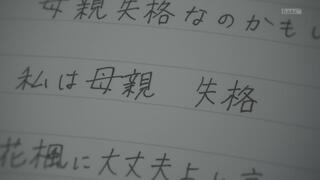 母親失格なのかもし
私は母親 失格
花楓に大丈夫よと言